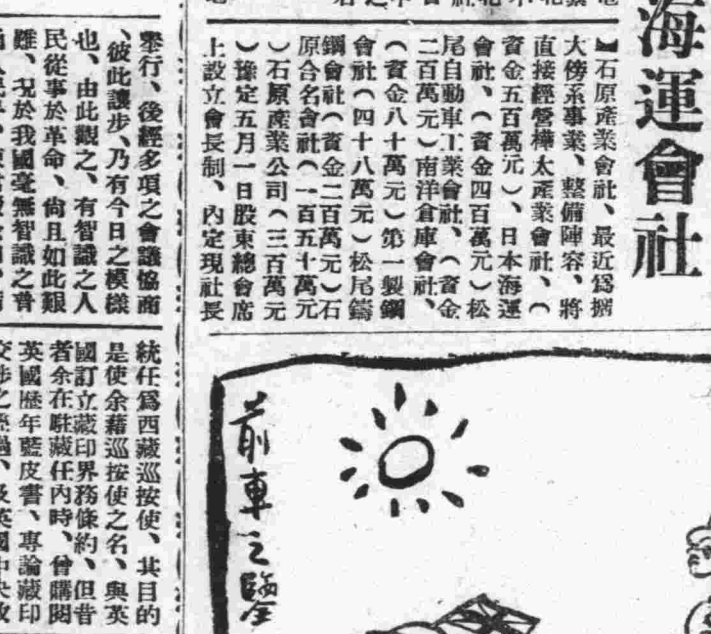 海運會社
】石原產業會社、最近爲擴
大傍系事業、整備陣容、將
直接經營樺太產業會社、（
資金五百萬元）、日本海運
會社、（資金四百萬元）松
尾自動車工業會社、（資金
二百萬元）南洋倉庫會社、
（資金八十萬元）第一製鋼
會社（四十八萬元）松尾鑄
鋼會社（資金二百萬元）石
原合名會社（一百五十萬元
）石原產業公司（三百萬元
）豫定五月一日股東總會席
上設立會長制、內定現社長
前車之鑒
舉行、後經多項之會議協商
、彼此讓步、乃有今日之模樣
也、由此觀之、有智識之人
民從事於革命、尙且如此艱
難、況於我國毫無智識之普
統任爲西藏巡按使、其目的
是使余藉巡按使之名、與英
國訂立藏印界務條約、但昔
者余在駐藏任內時、曾購閱
英國歷年藍皮書、專論藏印